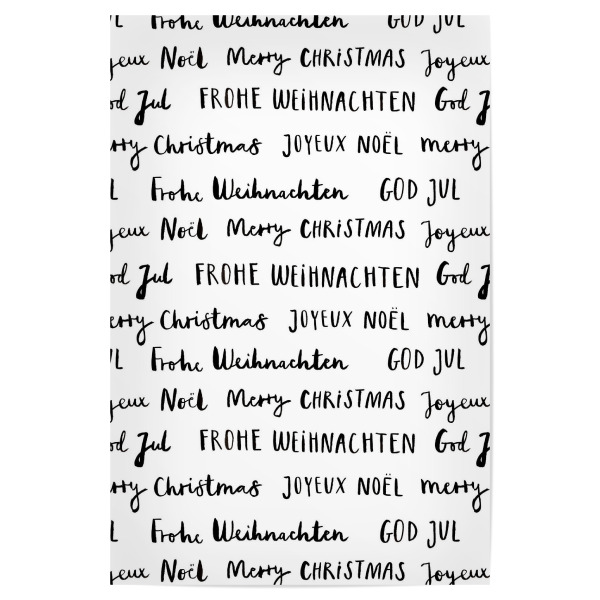 Frohe Weihnachten GOD JUL
Joyeux Noël Merry CHRISTMAS Joyeux
God Jul FROHE WEIHNACHTEN God J
merry Christmas JOYEUX NOËL merry
L Frohe Weihnachten GOD JUL
Joyeux Noël Merry CHRISTMAS Joyeux
God Jul FROHE WEIHNACHTEN God J
merry Christmas JOYEUX NOËL merry
L Frohe Weihnachten GOD JUL
Joyeux Noël Merry CHRISTMAS Joyeux
God Jul FROHE WEIHNACHTEN God J
merry Christmas JOYEUX NOËL merry
L Frohe Weihnachten GOD JUL
Joyeux Noël Merry CHRISTMAS Joyeux